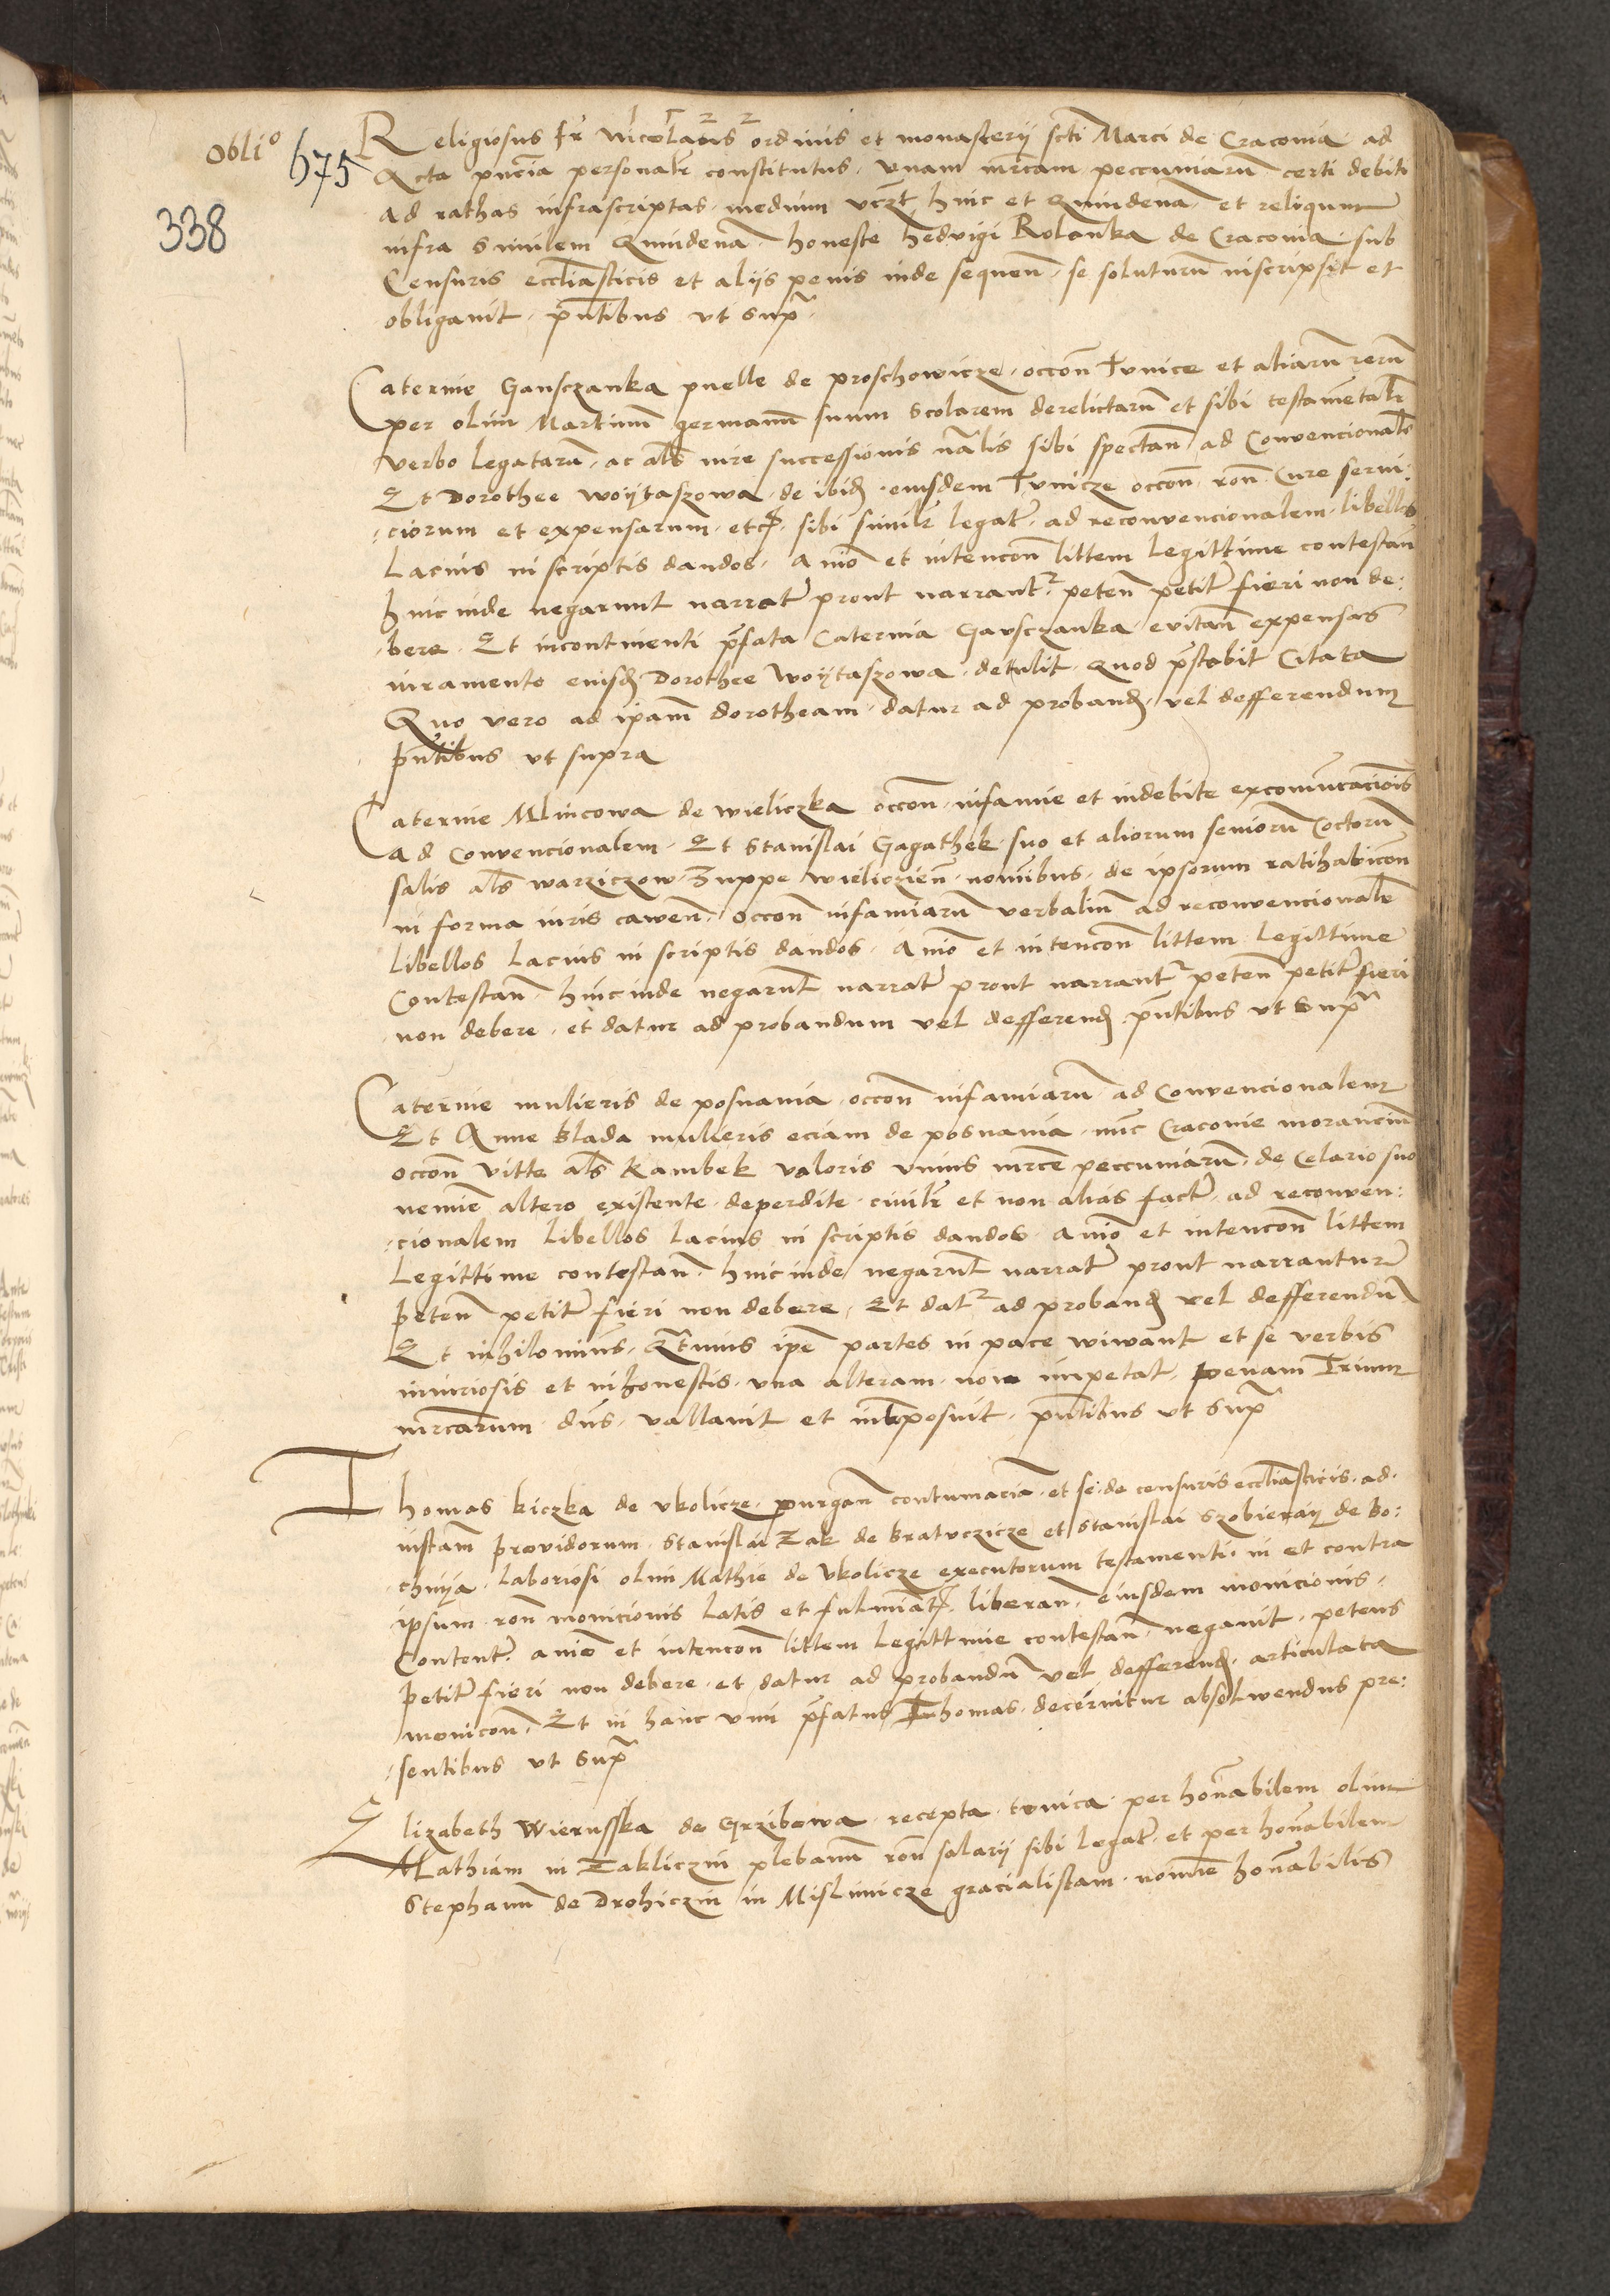 1522
Obli⁰ 675
338
Religiosus fr Nicolaus ordinis et monasterij scti Marci de Cracovia ad
Acta pncia personalr constitutus, unam mrcam peccuniarũ certi debiti
ad rathas infrascriptas, medium vczt hinc et Quindenã, et reliqum
infra similem Quindenã, honeste hedvigi Rolanka de Cracovia sub
Censuris eccliasticis et alijs penis inde sequen̄, se soluturũ inscripsit et
obligavit, pñtibus ut supᵃ.
Caterine Gansczanka puelle de proschowicze, occoñ Tunice et aliarũ rerũ
per olim Martinũ germanũ suum Scolarem derelictarũ et sibi testamẽtalr
verbo legatarũ, ac als iure successionis nãlis sibi spectañ ad Convencionalẽ
Et Dorothee Woÿtaszowa de ibid eiusdem Tunicze occoñ roñ Cure servi:
:ciorum et expensarum etc, sibi similr legatr, ad reconvencionalem, libellos
Lacius in scriptis dandos, Anīo et intencoñ littem legittime contestañ
hinc inde negarunt narratr prout narrantr, peteñ petitr fieri non de:
:bere, Et incontinenti pfata Caterina Gansczanka evitañ expensas
iuramento eiusd Dorothee Woÿtaszowa detulit, Quod pstabit Citata
Quo vero ad ipam dorotheam datur ad proband, vel defferendum
pñtibus ut supra
Caterine Mlincowa de Wieliczka occoñ infamie et indebite excomũicacionis
ad Convencionalem, Et Stanislai Gagathek suo et aliorum seniorũ Coctorũ
salis als warziczow Zuppe Wielicien̄ noīibus, de ipsorum ratihabicoñ
in forma iuris caven̄, occoñ infamiarũ verbaliũ ad reconvencionalẽ
Libellos Lacius in scriptis dandos, Anīo et intencoñ littem legittime
Contestañ, hincinde negarũt narratr prout narrantr peteñ petitr fieri
non debere, et datur ad probandum vel defferend, pñtibus ut supᵃ
Caterine mulieris de posnania occoñ infamiarũ ad Convencionalem
Et Anne Blada mulieris eciam de posnania nũc Cracovie moranciũ
occoñ vitte als Rambek valoris unius mrce peccuniarũ, de Celario suo
nemīe altero existente deperdite, civilr et non alias factr, ad reconven:
:cionalem Libellos Lacius in scriptis dandos, Anīo et intencoñ littem
Legittime contestañ, hincinde negarũt narratr prout narrantur
peteñ petitr fieri non debere, Et datr ad proband vel defferendũ
Et nihilominus, Qtinus ipe partes in pace wiwant et se verbis
iniuriosis et inhonestis una alteram non impetat, penam Trium
mrcarum dñs vallavit et interposuit, pñtibus ut supᵃ
Thomas Kiczka de Ukolicze, purgañ contumaciã, et se de censuris eccliasticis, ad
instam providorum Stanislai Zak de Bratuczicze et Stanislai Szobieraÿ de Bo:
:chnÿa, Laboriosi olim Mathie de Ukolicze executorum testamenti, in et contra
ipsum roñ monicionis latis et fulmīatr, liberañ, eiusdem monicionis
Contentr, anīo et intencoñ littem legittime contestañ negavit, petens
petitr fieri non debere, et datur ad probandũ vel defferend, articulata
monicoñ, Et in hanc vim pfatus Thomas decernitur absolwendus pre:
:sentibus ut supᵃ
Elizabeth Wierusska de Grzibowa, recepta tunica per honorabilem olim
Mathiam in Zakliczin plebanũ roñ salarij sibi legatr, et per honorabilem
Stephanũ de Drohiczin in Mislimicze gracialistam, nomīe honorabilis